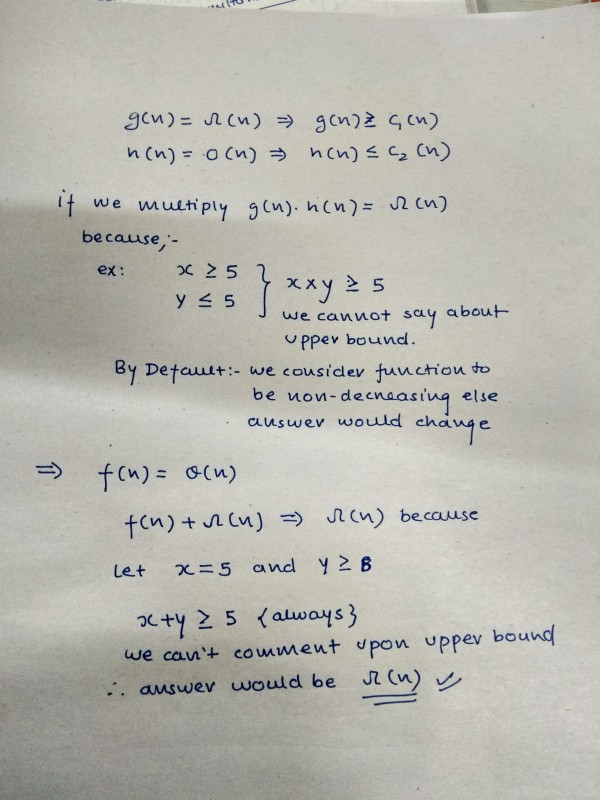 g(n) = Ω(n) ⇒ g(n) ≥ C₁(n)
h(n) = O(n) ⇒ h(n) ≤ C₂ (n)
if we multiply g(n). h(n) = Ω(n)
because,:-
ex: x ≥ 5 } x x y ≥ 5
y ≤ 5
we cannot say about
upper bound.
By Default:- we consider function to
be non-decreasing else
answer would change
⇒ f(n) = θ(n)
f(n) + Ω(n) ⇒ Ω(n) because
Let x = 5 and y ≥ 8
x+y ≥ 5 {always}
we can't comment upon upper bound
∴ answer would be Ω(n) ✓